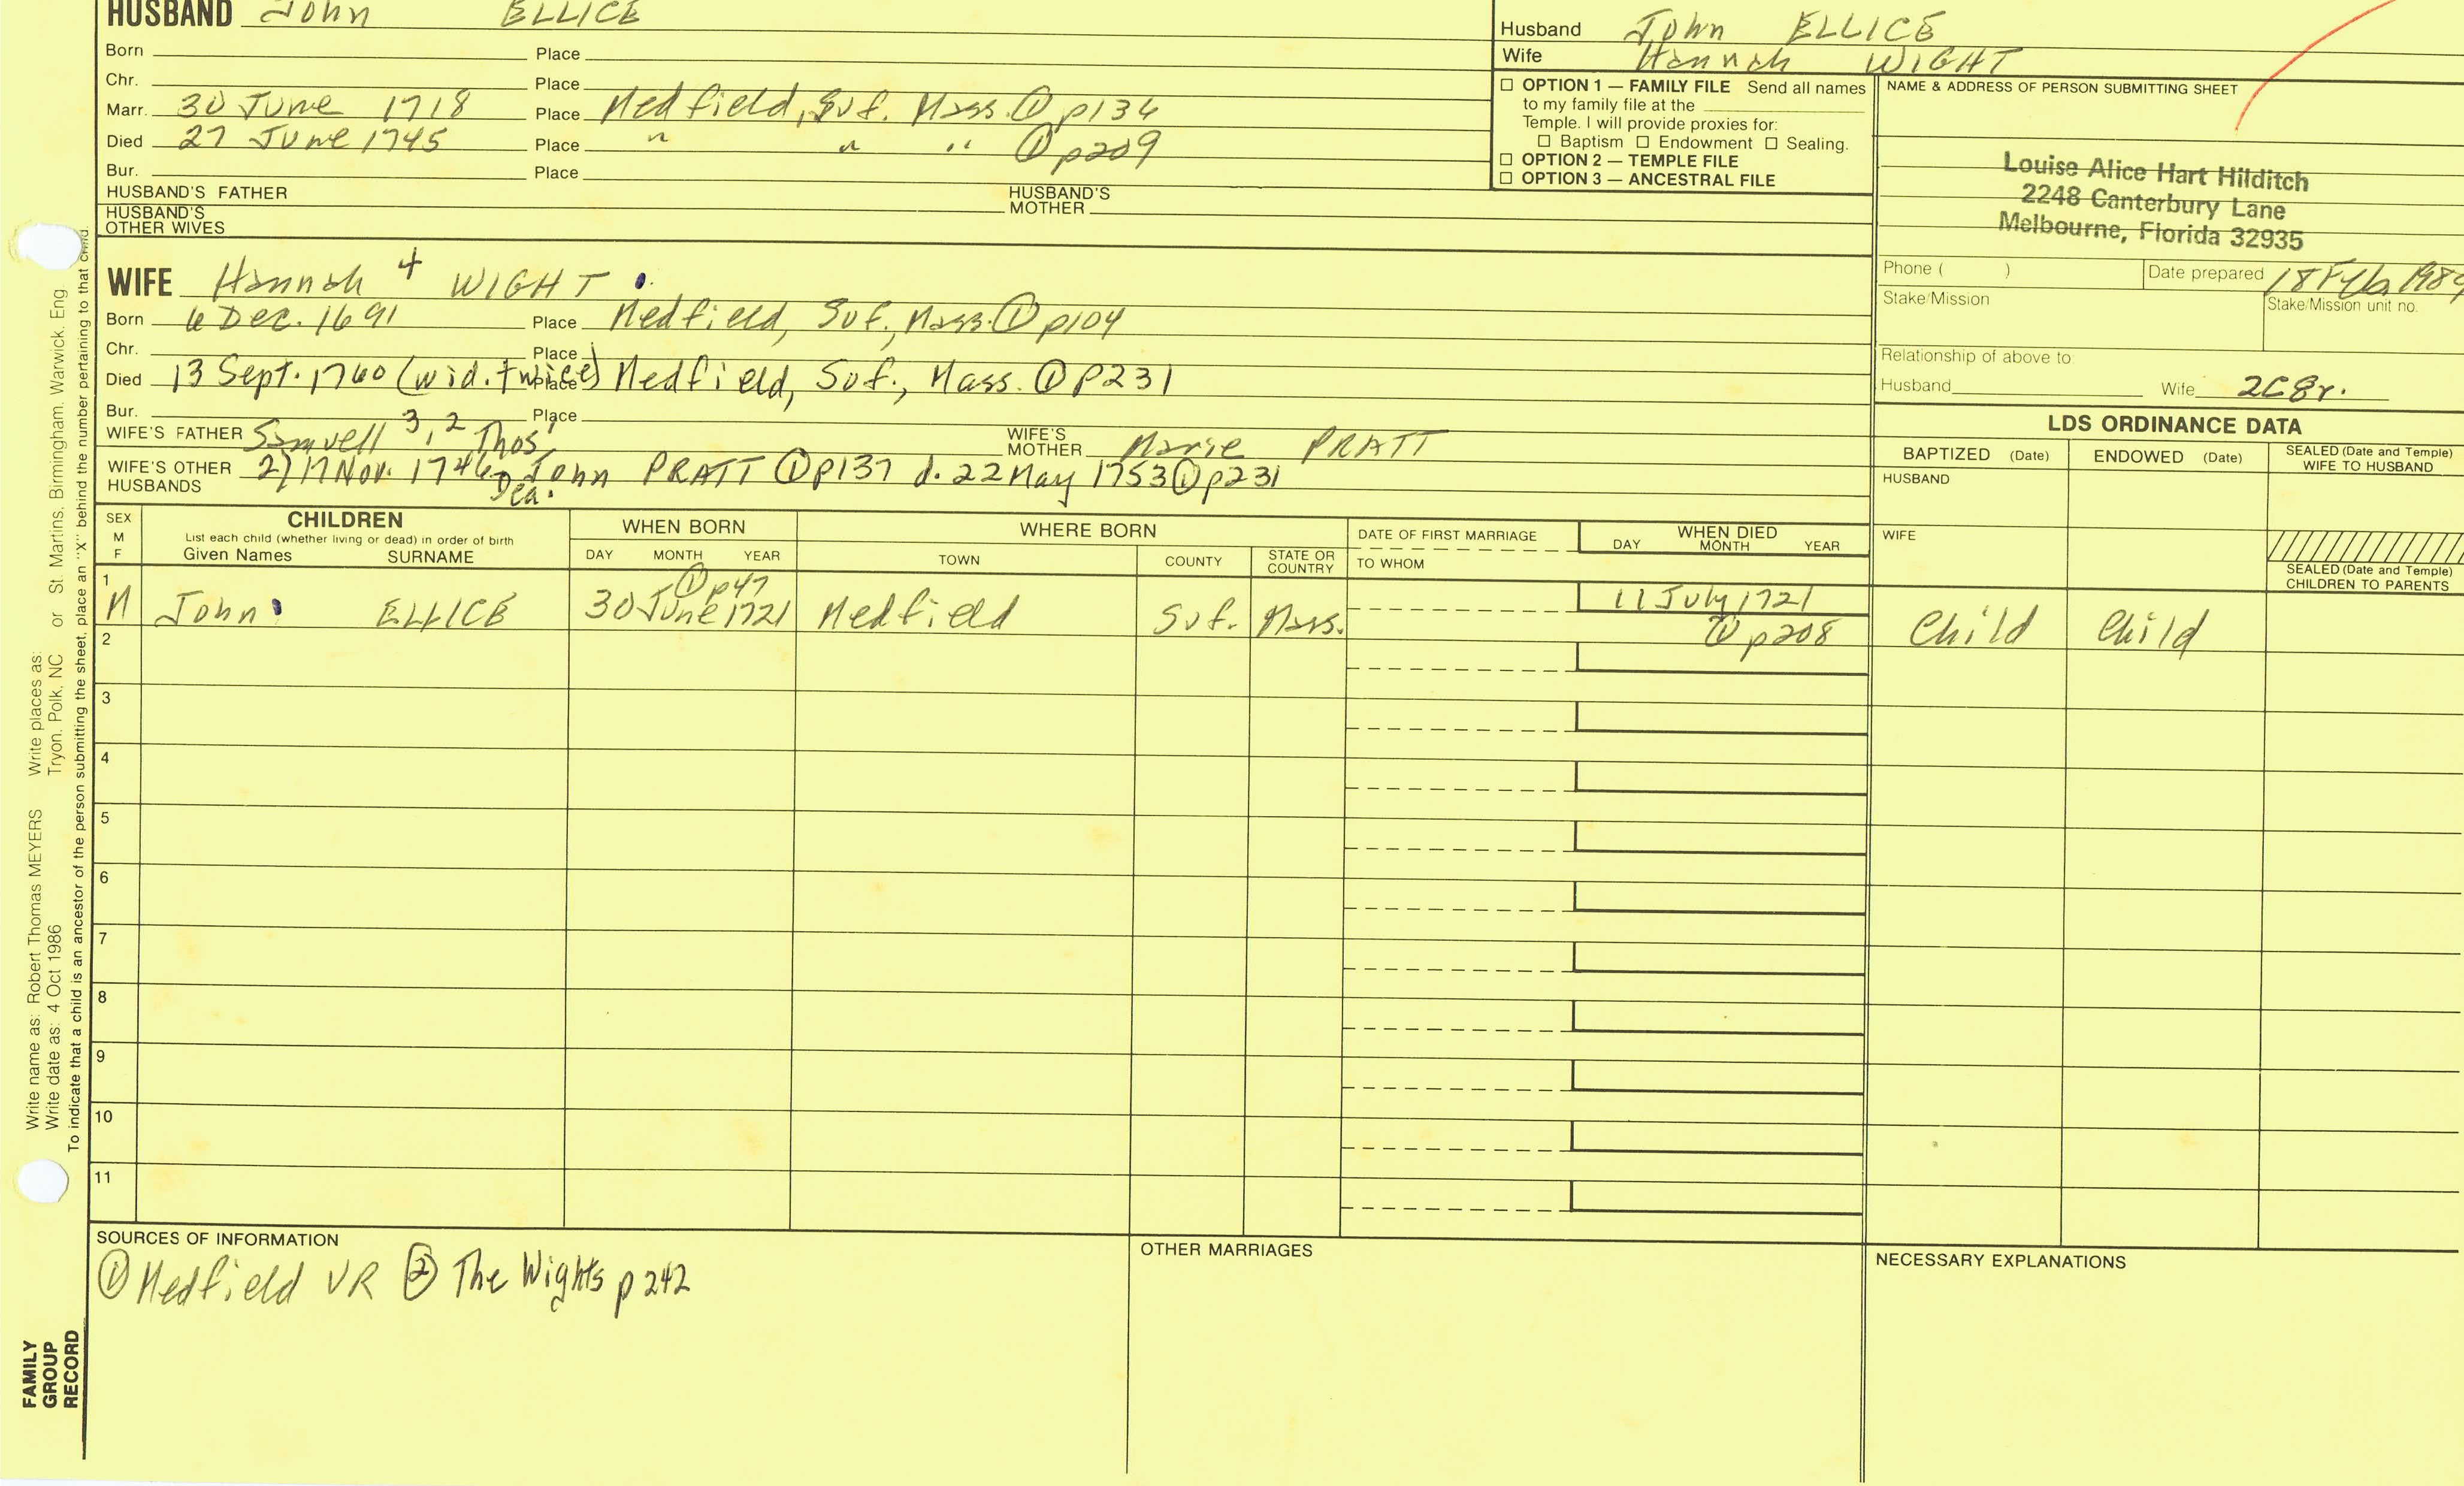 HUSBAND John ELLICE
Born Place
Chr. Place
Marr. 30 June 1718 Place Medfield, Suf. Mass. ① p136
Died 27 June 1745 Place " " " ① p209
Bur. Place
HUSBAND'S FATHER HUSBAND'S MOTHER
HUSBAND'S OTHER WIVES
Husband John ELLICE
Wife Hannah WIGHT
☐ OPTION 1 — FAMILY FILE Send all names
to my family file at the
Temple. I will provide proxies for:
☐ Baptism ☐ Endowment ☐ Sealing.
☐ OPTION 2 — TEMPLE FILE
☐ OPTION 3 — ANCESTRAL FILE
NAME & ADDRESS OF PERSON SUBMITTING SHEET
Louise Alice Hart Hilditch
2248 Canterbury Lane
Melbourne, Florida 32935
Phone ( ) Date prepared 18 Feb 1989
Stake/Mission Stake/Mission unit no.
Relationship of above to:
Husband Wife 2C8r.
WIFE Hannah 4 WIGHT
Born 6 Dec. 1691 Place Medfield, Suf., Mass. ① p104
Chr. Place
Died 13 Sept. 1760 (wid. twice) Place Medfield, Suf., Mass. ① p231
Bur. Place
WIFE'S FATHER Samuell 3, 2 Thos 1 WIFE'S MOTHER Marie PRATT
WIFE'S OTHER HUSBANDS 2) 17 Nov. 1746 Dea. John PRATT ① p137 d. 22 May 1753 ① p231
LDS ORDINANCE DATA
BAPTIZED (Date) ENDOWED (Date) SEALED (Date and Temple) WIFE TO HUSBAND
HUSBAND
WIFE
SEALED (Date and Temple) CHILDREN TO PARENTS
SEX M F
CHILDREN
List each child (whether living or dead) in order of birth
Given Names SURNAME
WHEN BORN
DAY MONTH YEAR
WHERE BORN
TOWN COUNTY STATE OR COUNTRY
DATE OF FIRST MARRIAGE
TO WHOM
WHEN DIED
DAY MONTH YEAR
1 M John ELLICE 30 June 1721 ① p47 Medfield Suf. Mass. 11 July 1721 ① p208 Child Child
2
3
4
5
6
7
8
9
10
11
SOURCES OF INFORMATION
① Medfield VR ② The Wights p 242
OTHER MARRIAGES
NECESSARY EXPLANATIONS
Write name as: Robert Thomas MEYERS Write places as: St. Martins, Birmingham, Warwick, Eng
Write date as: 4 Oct 1986 Tryon, Polk, NC or
To indicate that a child is an ancestor of the person submitting the sheet, place an "X" behind the number pertaining to that child.
FAMILY
GROUP
RECORD